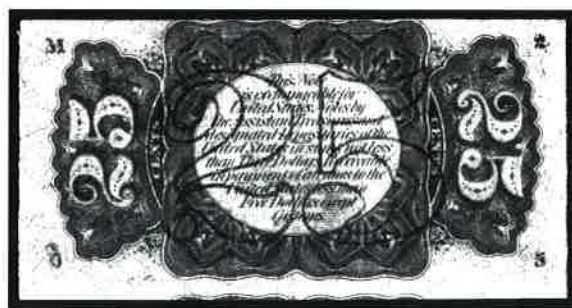 M 2
25 25
CENTS CENTS
This Note
is exchangeable for
United States Notes by
the Assistant Treasurers and
designated depositaries of the
United States in sums not less
than Three Dollars. Receivable
in payment of all dues to the
United States less than
Five Dollars except
Customs.
5